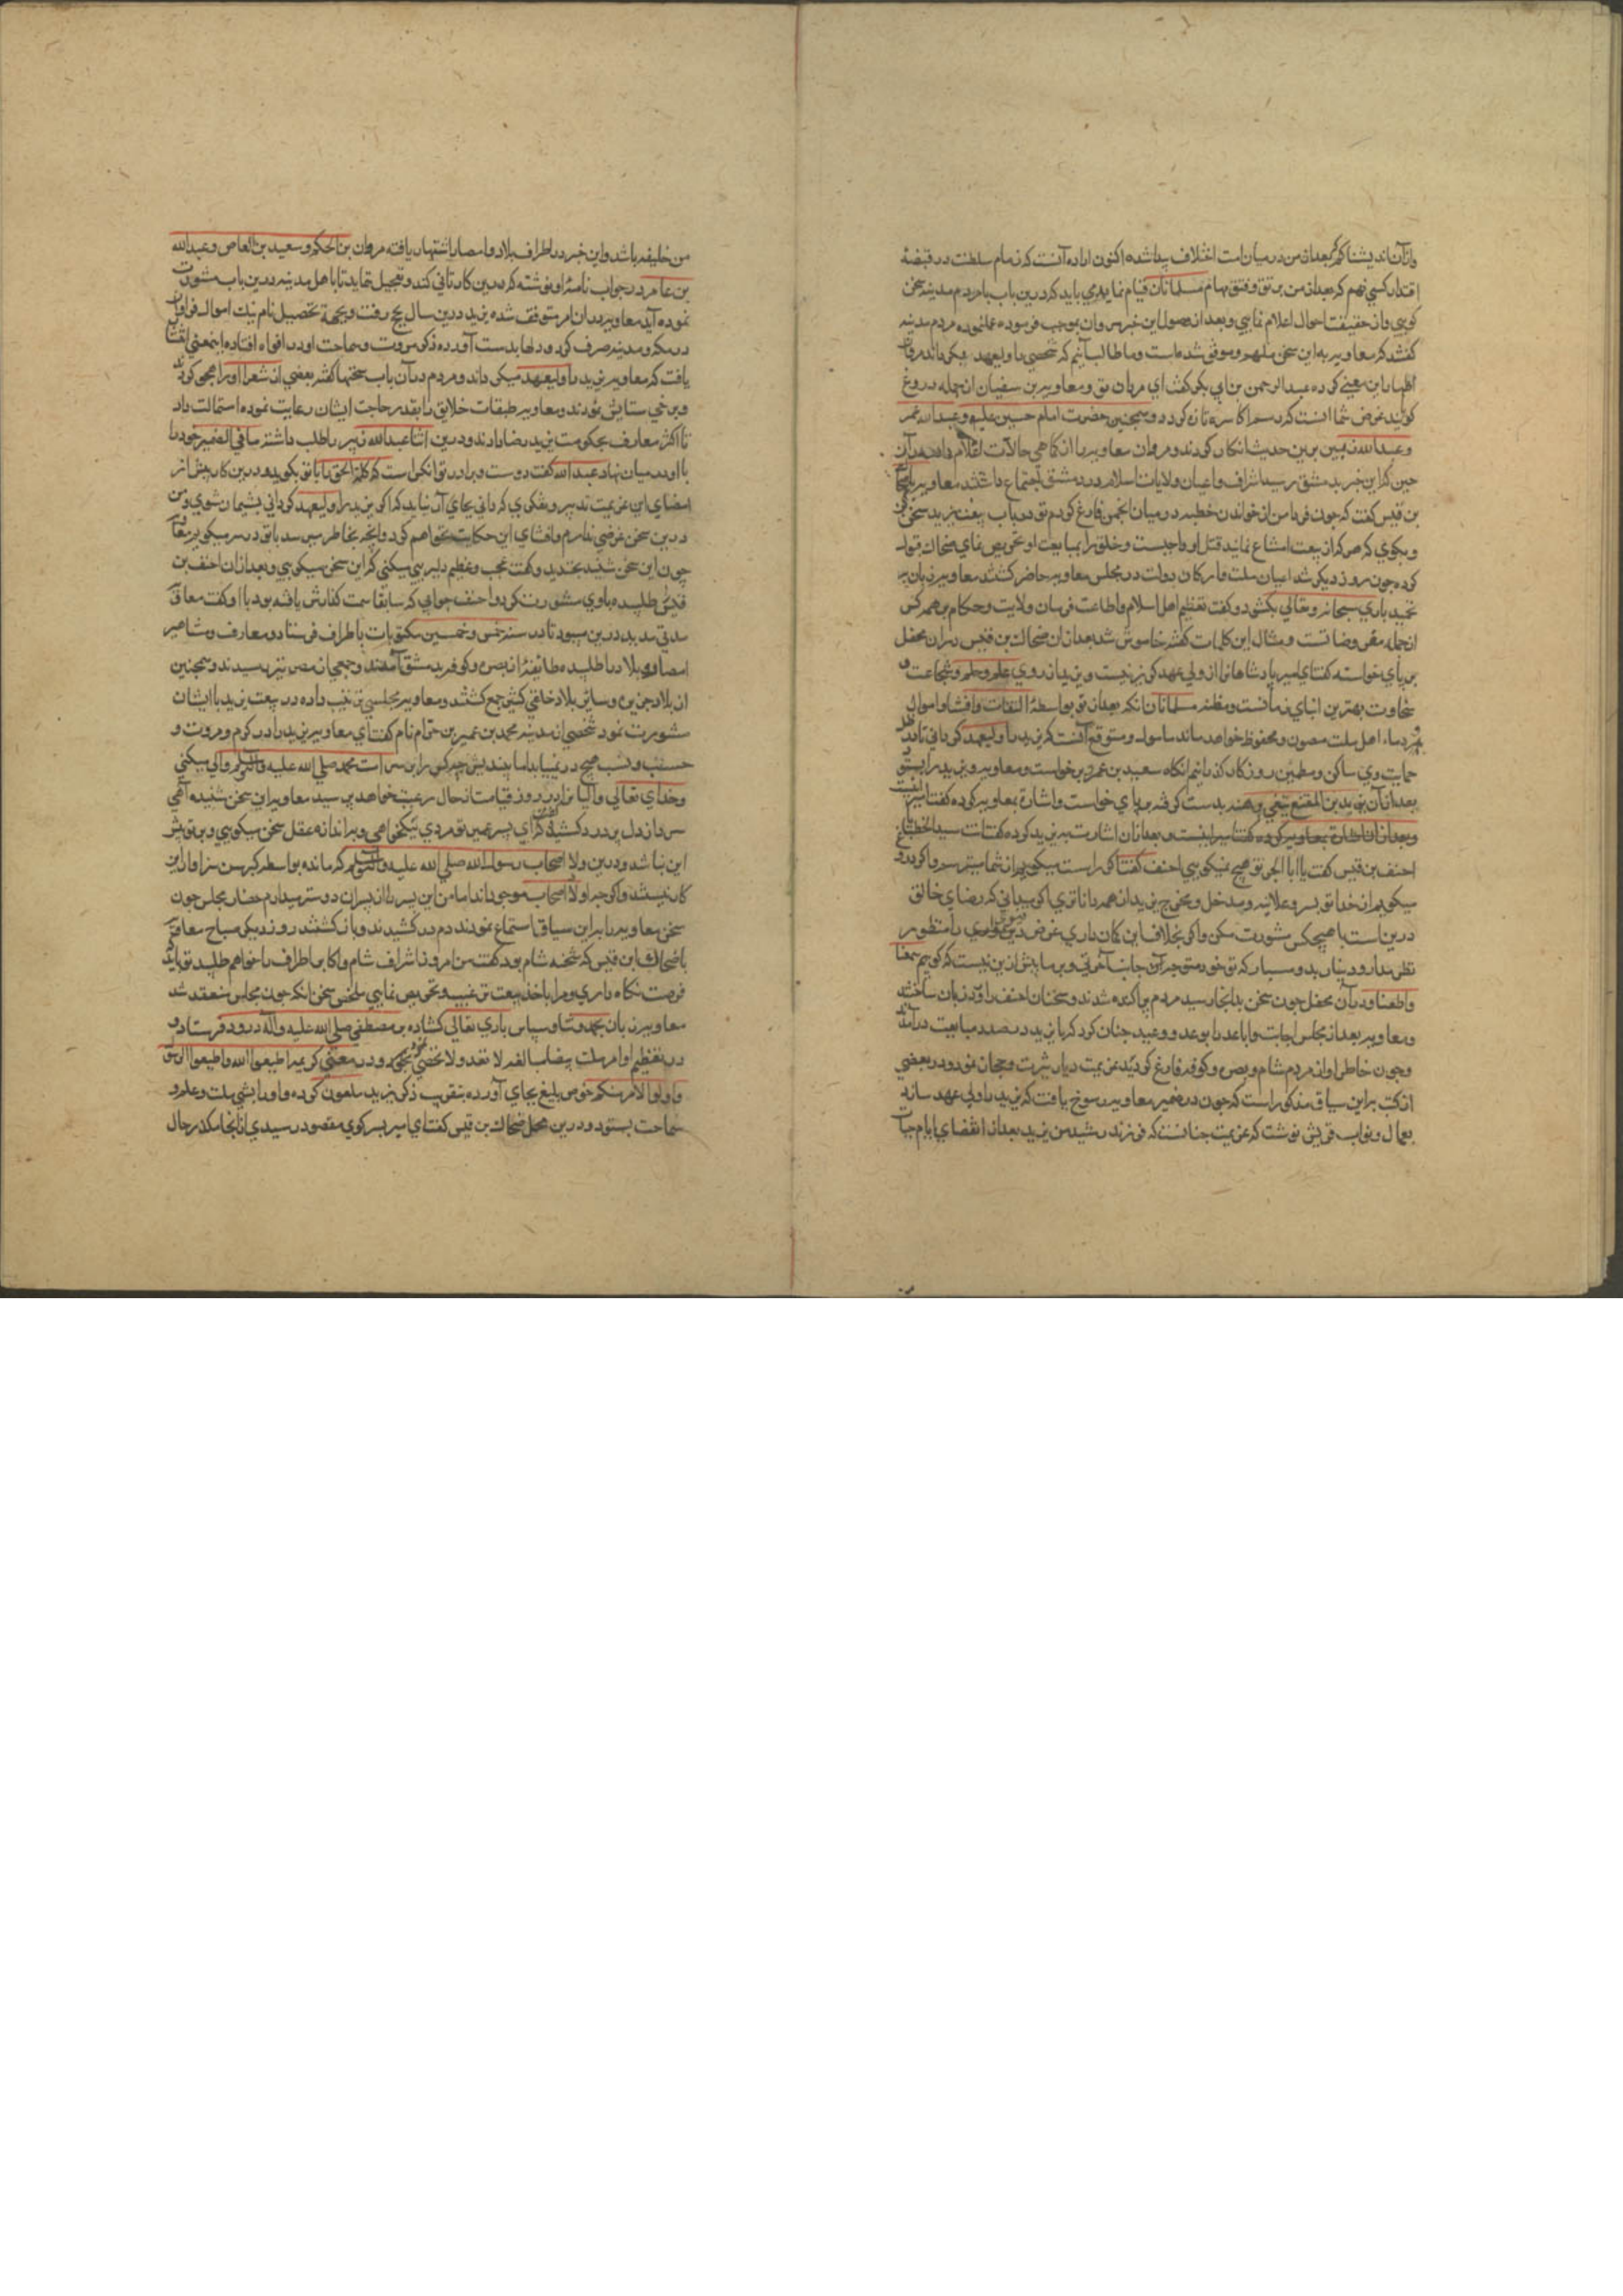 وازآن اندیشناکم که بعد از من در میان امت اختلاف پیدا شده اکنون اراده آنست که زمام سلطنت در قبضهٔ
اقتدار کسی نهم که بعد از من برتق و فتق مهام مسلمانان قیام نماید می باید که درین باب با مردم مدینه سخن
کویی و از حقیقت احوال اعلام نمایی و بعد از وصول این خبر مروان بموجب فرموده عمل نموده مردم مدینه
کفتند که معاویه به این سخن ملهم و موفق شده است و ما طالب آنیم که شخصی را ولیعهد
اظهار این معنی کرده عبد الرحمن بن ابی بکر کفت ای مروان تو و معاویه بن سفیان از جمله دروغ
کویند غرض شما آنست که رسم اکاسره تازه کردد و همچنین حضرت امام حسین علیه و عبد الله عمر
و عبد الله زبیر برین حدیث انکار کردند و مروان معاویه را از کماهی حالات اعلام داد و در آن
حین که این خبر بدمشق رسید اشراف و اعیان ولایات اسلام در دمشق اجتماع داشتند معاویه با ضحاک
بن قیس کفت که چون فردا من از خواندن خطبه در میان انجمن فارغ کردم تو در باب بیعت یزید سخن کن
و بکوی که هر که از بیعت امتناع نماید قتل او واجبست و خلق را بمبایعت او تحریص نمای ضحاک قبول
کرده چون روز دیکر شد اعیان ملت و ارکان دولت در مجلس معاویه حاضر کشتند معاویه زبان به
تحمید باری سبحانه و تعالی بکشود و کفت تعظیم اهل اسلام و اطاعت فرمان ولایت و حکام بر همه کس
از جمله مفروضاتست و مثال این کلمات کفته خاموش شد بعد از آن ضحاک بن قیس در آن محفل
بر پای خواسته کفت ای امیر پادشاهانرا از ولی عهد کزیر نیست و یزید از روی علم و حلم و شجاعت و
سخاوت بهترین ابنای زمانست و مظنه مسلمانان آنکه بعد از تو بواسطهٔ التفات و
دماء اهل ملت مصون و محفوظ خواهد ماند مامول و متوقع آنست که یزید را ولیعهد کردانی تا در ظل
حمایت وی ساکن و مطمئن روزکار کذرانیم آنکاه سعید بن عمرو برخواست و معاویه و یزید را بستود
بعد از آن یزید بن المقنع قبضه بدست کرفته بر پای خواست و اشارة بمعاویه کرده کفت امیر اینست
و بعد از آن اشارة بمعاویه کرده کفت امیر اینست و بعد از آن اشارت به یزید کرده کفت انت سید الخطباء
احنف بن قیس کفت یا ابا البحر تو هیچ نمیکویی احنف کفت اکر راست میکویم از شما میترسم و اکر دروغ
میکویم از خدا تو بسر و علانیه و مدخل و مخرج یزید از همه داناتری اکر میدانی که رضای خالق
درین است با هیچکس مشورت مکن و اکر بخلاف این کمان داری عرض
نظر مدار و دنیا را بدو مسپار که تو خود متوجه آن جانب آخرتی و بر ما بیش ازین نیست که کوییم سمعنا
و اطعنا و در آن محفل چون سخن بدانجا رسید مردم پراکنده شدند و سخنان احنف را ورد زبان ساختند
و معاویه بعد از مجلس اجانب و اباعد را بوعد و وعید چنان کرد که با یزید در صدد مبایعت درآمدند
و چون خاطر او از مردم شام و بصره و کوفه فارغ کردید عزیمت دیار یثرب و حجاز نمود و در بعضی
از کتب براین سیاق مذکور است که چون در ضمیر معاویه رسوخ یافت که یزید را ولی عهد سازد
بعمال و نواب قریش نوشت که عزیمت چنانست که فرزند رشید من یزید بعد از انقضای ایام حیات
من خلیفه باشد و این خبر در اطراف بلاد و امصار اشتهار یافته مروان بن الحکم و سعید بن العاص و عبد الله
بن عامر در جواب نامهٔ او نوشته که درین کار تانی کند و تعجیل ننماید تا با اهل مدینه درین باب مشورت
نموده آید معاویه در آن امر متوقف شده یزید درین سال بحج رفت و بجهة تحصیل نام نیک اموال فراوان
در مکه و مدینه صرف کرد و دلها بدست آورده ذکر مروت و سماحت او در افواه افتاده اینمعنی افشا
یافت که معاویه یزید را ولیعهد میکرداند و مردم در آن باب سخنها کفته بعضی از شعرا او را هجو کردند
و برخی ستایش نمودند و معاویه طبقات خلایق را بقدر حاجت ایشان رعایت نموده استمالت داد
تا اکثر معارف بحکومت یزید رضا دادند و درین اثنا عبد الله زبیر را طلب داشته ما فی الضمیر خود را
با او در میان نهاد عبد الله کفت دوست و برادر تو آنکس است که کلمة الحق را با تو بکوید و درین کار پیش از
امضای این عزیمت تدبیر و تفکری کردنی بجای آر نباید که اکر یزید را ولیعهد کردانی پشیمان شوی و من
درین سخن غرضی ندارم و افشای این حکایت نخواهم کرد و آنچه بخاطر میرسد با تو در سر میکویم معاویه
چون این سخن شنید بخندید و کفت عجب و عظیم دلیریی میکنی که این سخن میکویی و بعد از آن احنف بن
قیس طلبیده با وی مشورت کرد و احنف جوابی که سابقا سمت کذارش یافته بود با او کفت معاویه
مدتی مدید درین میبود تا در سنه خمس و خمسین مکتوبات باطراف فرستاد و معارف و مشاهیر
امصار و بلاد را طلبیده طائفهٔ از بصره و کوفه بدمشق آمدند و جمعی از مصر نیز رسیدند و همچنین
از بلاد جزیره و سایر بلاد خلقی کثیر جمع کشتند و معاویه مجلسی ترتیب داده در بیعت یزید با ایشان
مشورت نمود شخصی از مدینه محمد بن عمیر بن حزام نام کفت ای معاویه یزید را در کرم و مروت و
حسب و نسب هیچ در نمییابد اما بیندیش چه کس را بر سر امت محمد صلی الله علیه و آله و سلم والی میکنی
و خدای تعالی والیانرا در روز قیامت از حال رعیت خواهد پرسید معاویه این سخن شنیده آهی
سرد از دل پر درد کشید و کفت ای پسر عمیر تو مردی نیکخواهی و بر اندازه عقل سخن میکویی و بر تو بیش
این نباشد و درین ولا اصحاب رسول الله صلی الله علیه و آله و سلم که مانده بواسطه کبر سن سزاوار این
کار نیستند و اکرچه اولاد اصحاب موجودند اما من این پسر را از پسران دوستر میدارم حضار مجلس چون
سخن معاویه را براین سیاق استماع نمودند دم در کشیدند و باز کشتند روز دیکر صباح معاویه
با ضحاک ابن قیس که شحنه شام بود کفت من امروز اشراف شام و اکابر اطراف را خواهم طلبید تو باید که
فرصت نکاه داری و مرا باخذ بیعت ترغیب و تحریص نمایی ملخص سخن آنکه چون مجلس منعقد شد
معاویه زبان بحمد و ثنا و سپاس باری تعالی کشاده بر مصطفی صلی الله علیه و آله درود فرستاد و
در تعظیم اوامر ملت بیضا مبالغه لا تعد و لا تحصی نمود و در معنی کریمه اطیعوا الله و اطیعوا الرسول
و اولوا الامر منکم خوض بلیغ بجای آورده بتقریب ذکر یزید ملعون کرده و او را بنیکی ملت و علم و
سماحت بستود و درین محل ضحاک بن قیس کفت ای امیر بسر کوی مقصود رسیدی